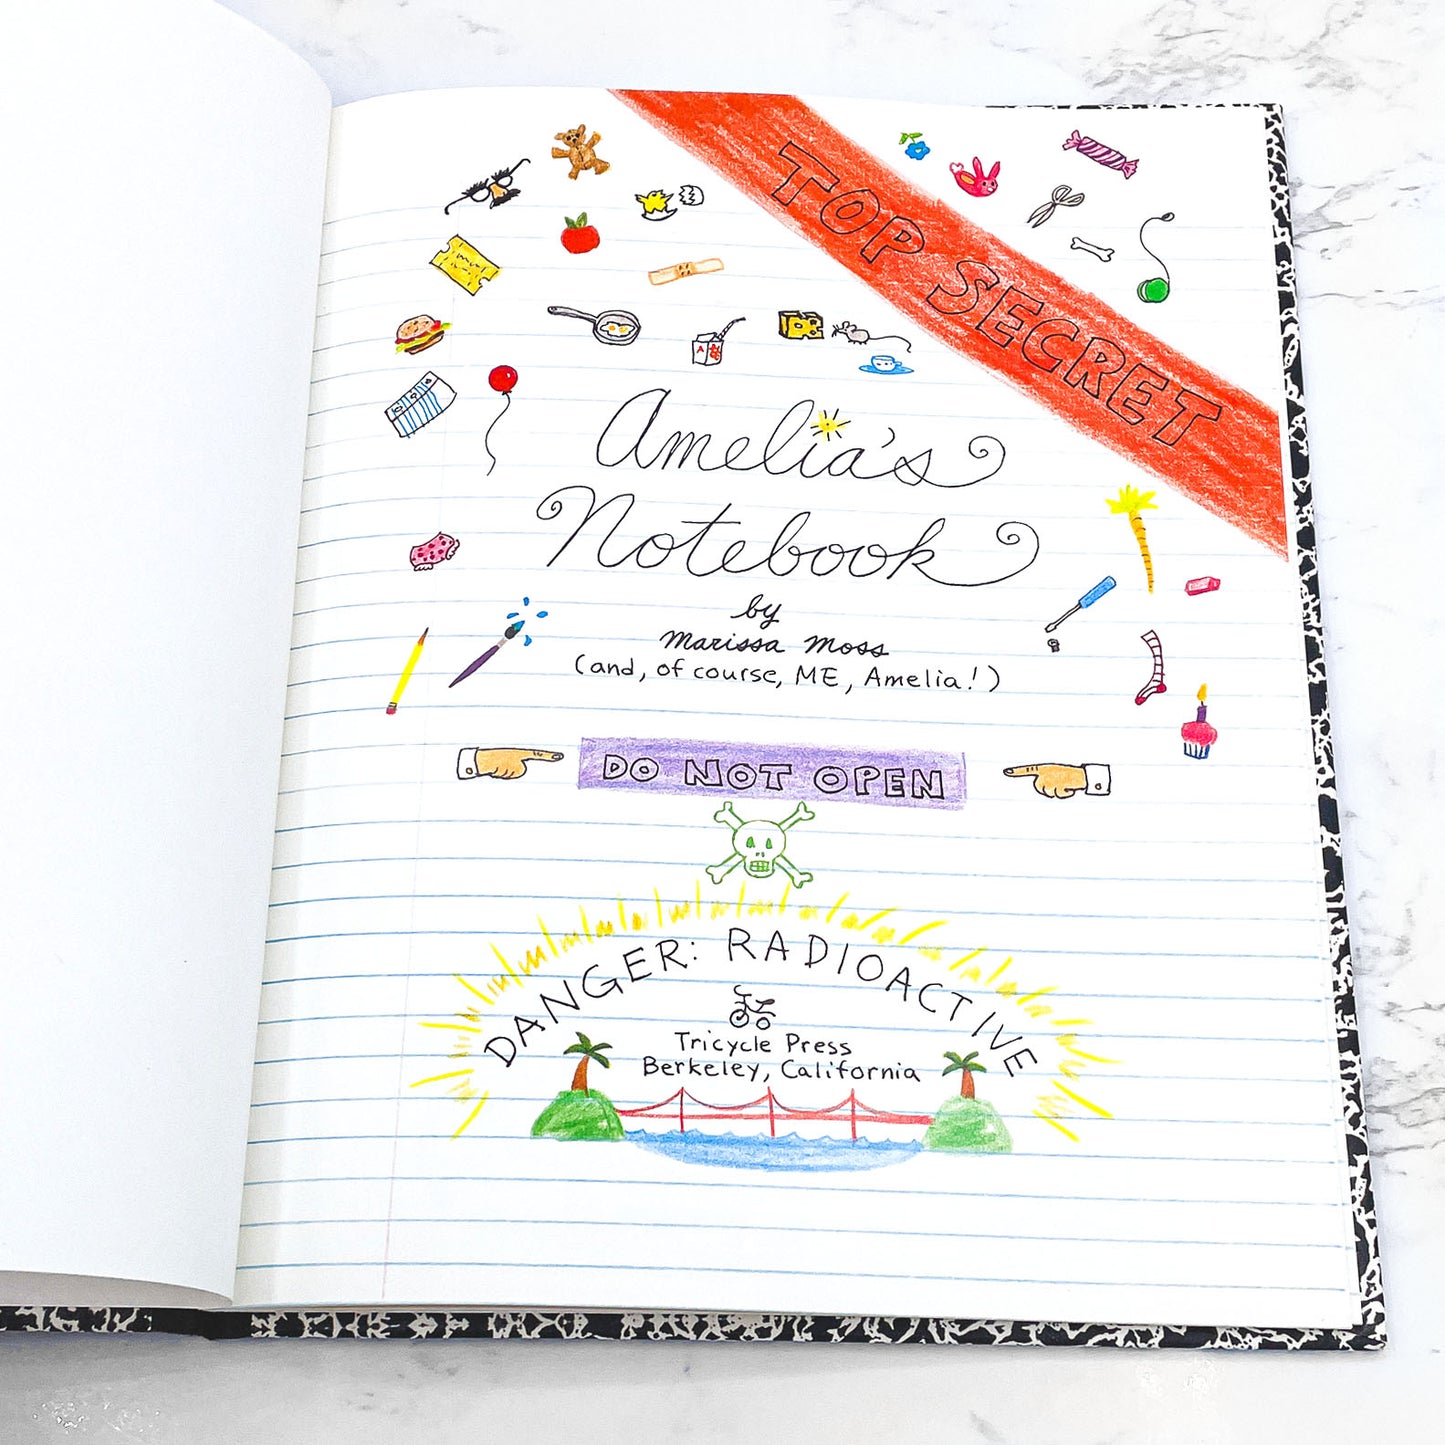 TOP SECRET
Amelia's
Notebook
by
Marissa Moss
(and, of course, ME, Amelia!)
DO NOT OPEN
DANGER: RADIOACTIVE
Tricycle Press
Berkeley, California